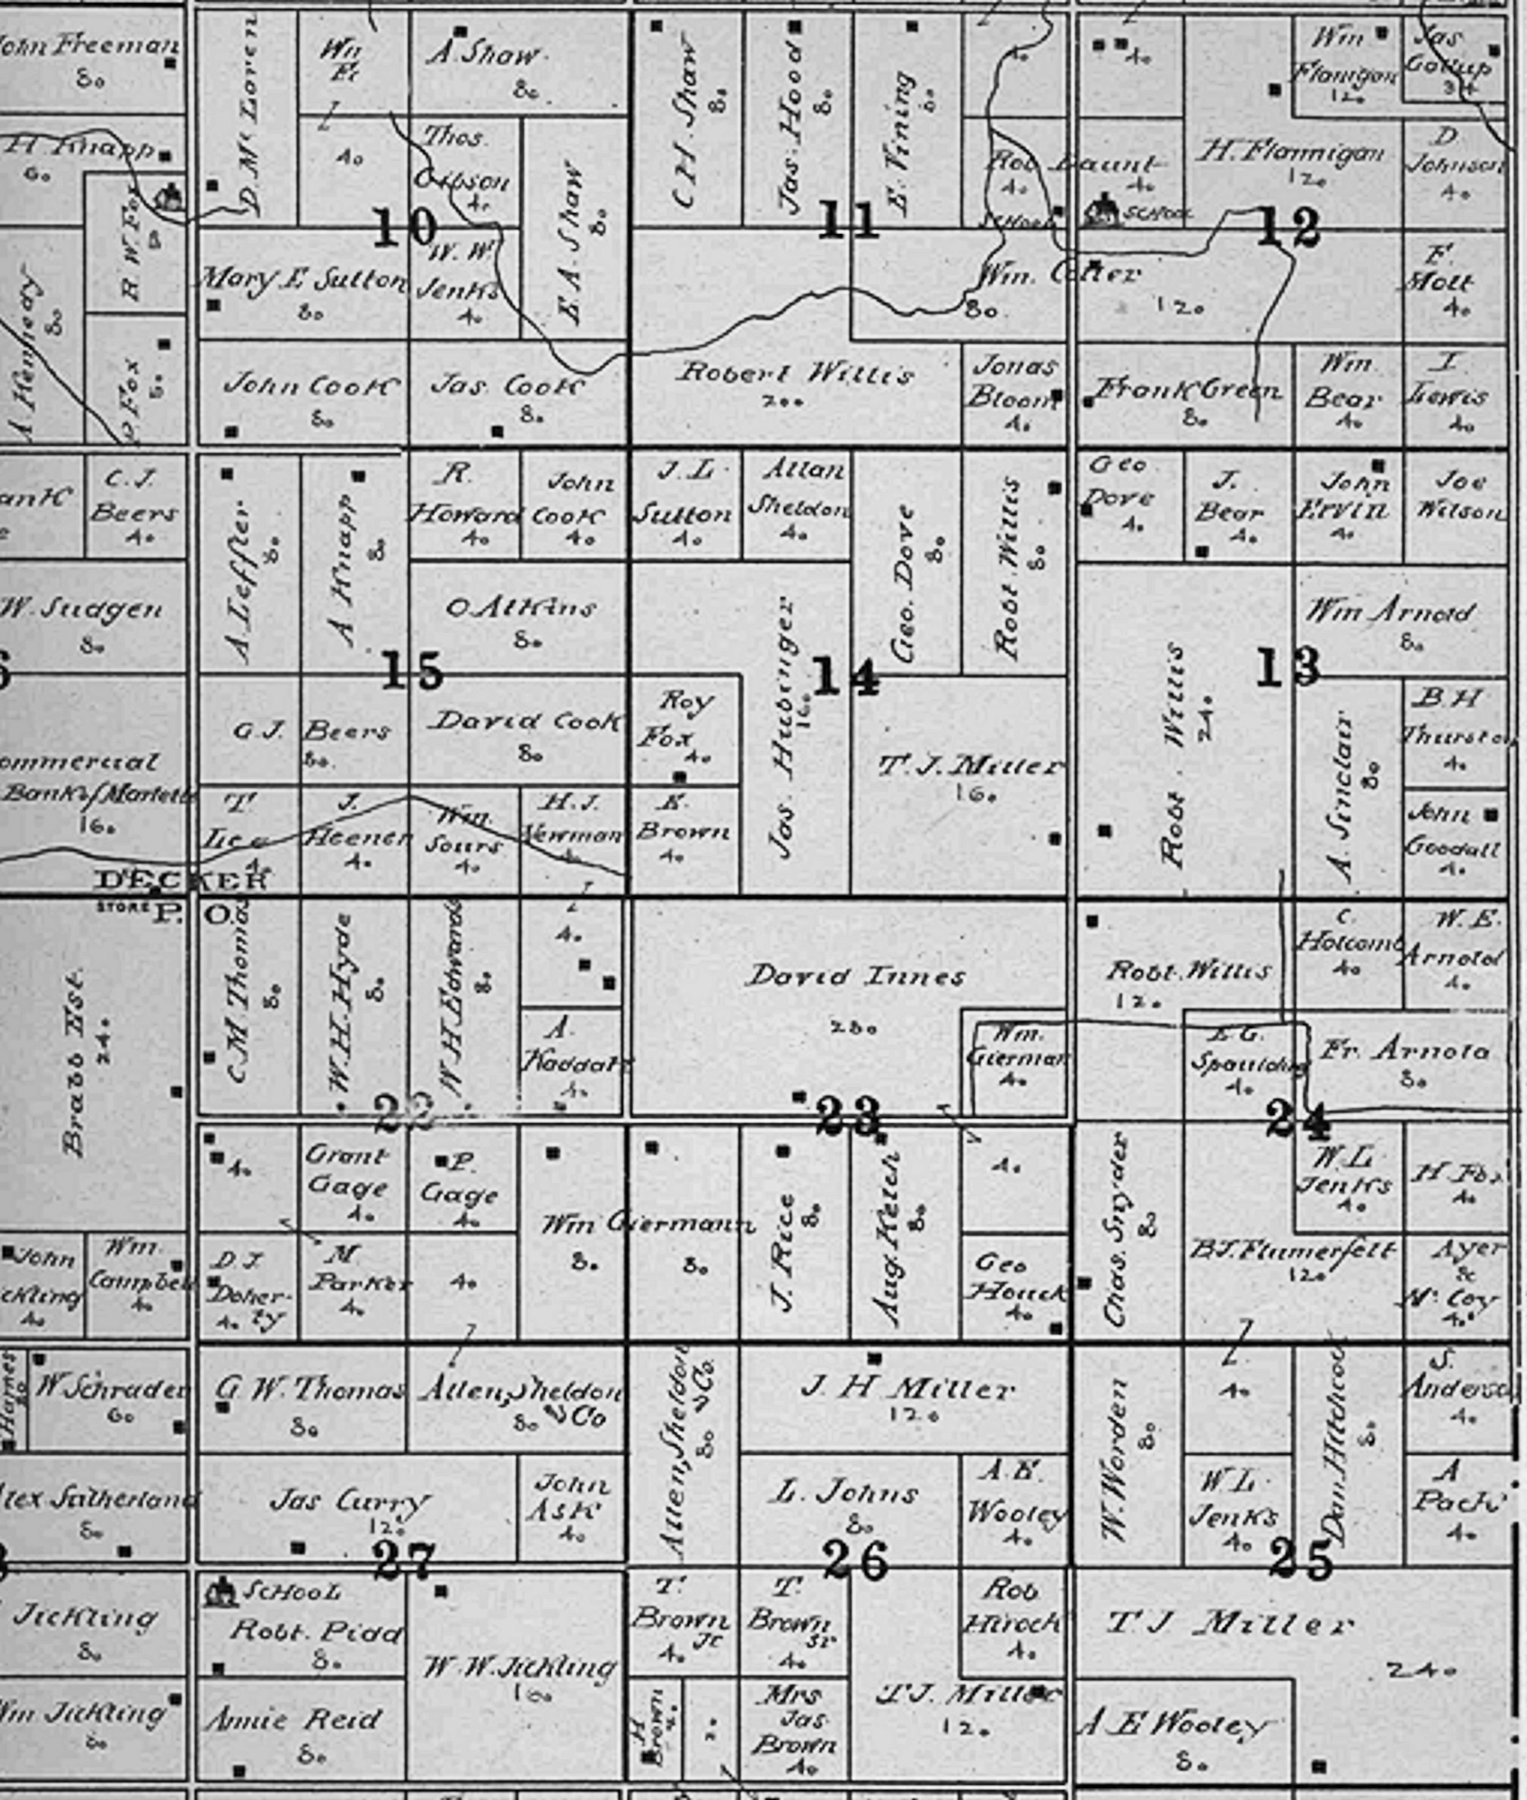 John Freeman
80
H Knapp
60
R. W. Fox
A Kennedy
80
Fox
D. McLoren
Wm
40
A. Shaw
80
Thos.
Gibson
40
E. A. Shaw
80
10
Mary E Sutton
80
W. W.
Jenks
40
John Cook
80
Jas. Cook
80
C. H. Shaw
80
Jas. Hood
80
E. Vining
80
40
Rob Launt
40
40
SCHOOL
SCHOOL
11
Wm. Coller
80
120
Robert Willis
200
Jonas
Bloom
40
40
Wm
Flanigan
120
Jas
Gallup
34
H. Flannigan
120
D
Johnson
40
12
F.
Mott
40
Frank Green
80
Wm.
Bear
40
I
Lewis
40
C. J.
Beers
40
W. Sudgen
80
Commercial
Bank of Marlette
160
A Leffler
80
A Knapp
80
R.
Howard
40
John
Cook
40
O. Atkins
80
15
G. J. Beers
80
David Cook
80
T
Lee
40
J.
Heener
40
Wm.
Sours
40
H. J.
Newman
DECKER
STORE P. O.
J. L.
Sutton
40
Allan
Sheldon
40
Geo. Dove
80
Robt. Willis
80
Jas. Hubinger
160
14
Roy
Fox
40
E.
Brown
40
T. J. Miller
160
Geo
Dove
40
J.
Bear
40
John
Ervin
40
Joe
Wilson
Wm Arnold
80
13
Robt. Willis
240
A. Sinclair
80
B H
Thurston
40
John
Goodall
40
Brabb Est.
240
C. M Thomas
80
W. H. Hyde
80
W H Edwards
80
40
A.
Haddat
40
22
40
Grant
Gage
40
P.
Gage
40
Wm Giermann
80
80
D J
Doherty
40
M
Parker
40
40
John
40
Wm.
Campbell
40
David Innes
280
Wm.
Gierman
40
23
J. Rice
80
Aug. Ketch
80
40
Geo
Houck
40
Robt. Willis
120
C.
Holcomb
40
W. E.
Arnold
40
E. G.
Spaulding
40
Fr. Arnold
80
24
Chas. Snyder
80
W. L.
Jenks
40
H. Fox
40
B. J. Flumerfelt
120
Ayer
&
McCoy
40
W. Schrader
60
Alex Sutherland
80
G. W. Thomas
80
Allen, Sheldon
& Co
80
Jas Curry
120
John
Ask
40
27
Jickling
80
Wm Jickling
80
SCHOOL
Robt. Pidd
80
Annie Reid
80
W. W. Jickling
160
Allen, Sheldon & Co.
80
J. H Miller
120
L. Johns
80
A. E.
Wooley
40
26
T.
Brown
Jr
40
T.
Brown
Sr
40
Rob
Hirock
40
H
Brown
20
20
Mrs
Jas
Brown
40
T J. Miller
120
W. Worden
80
40
Dan. Hitchcock
80
S.
Anderson
40
W L
Jenks
40
A
Pack
40
25
T J Miller
240
A E Wooley
80